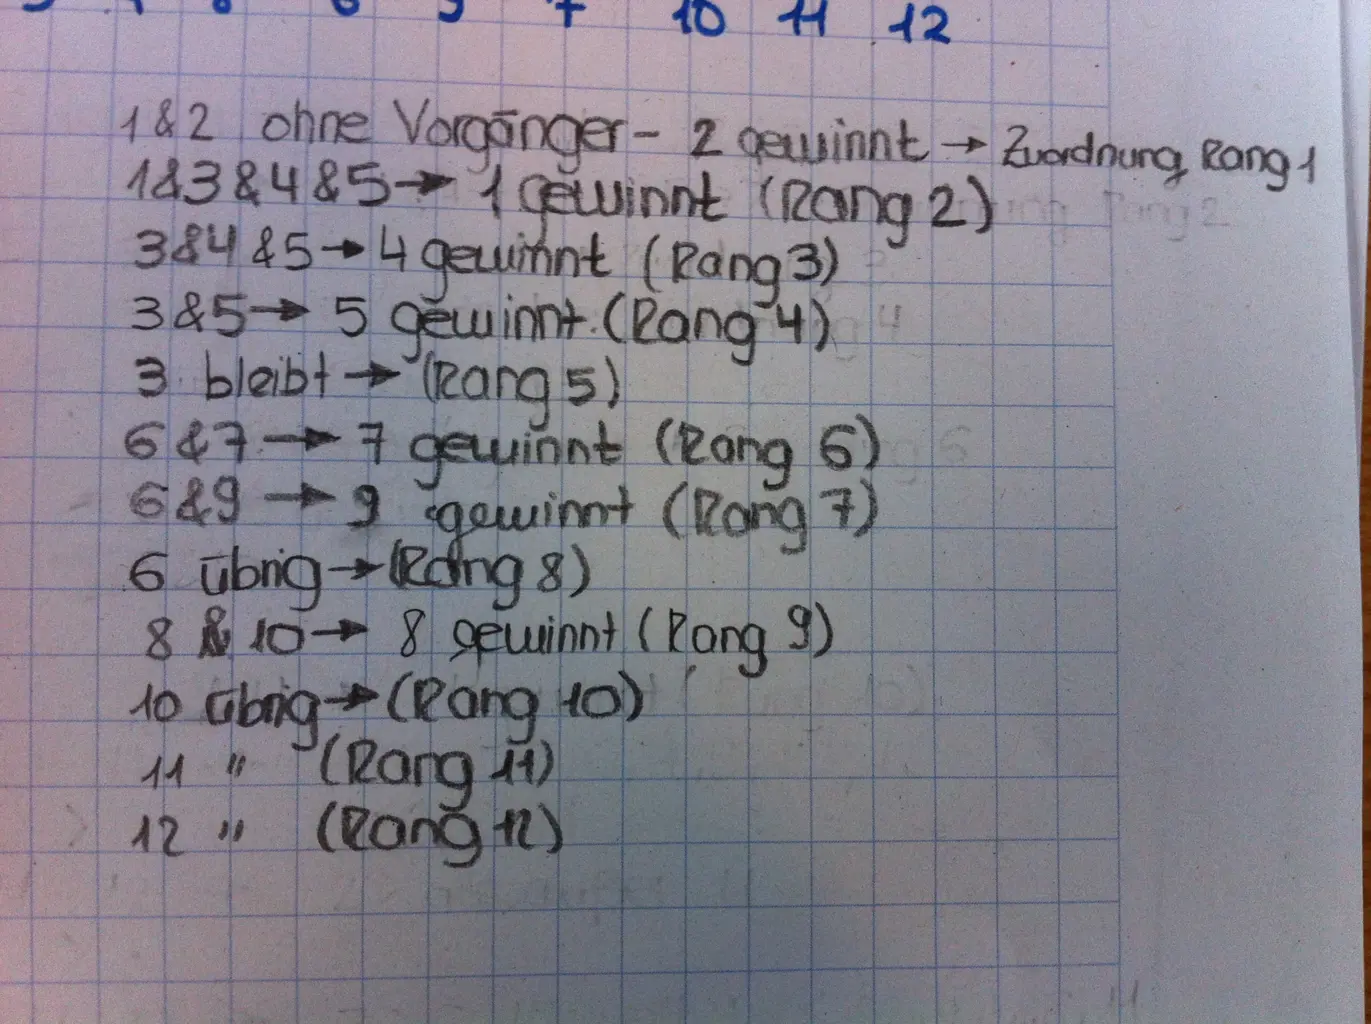 7 10 11 12
1&2 ohne Vorgänger - 2 gewinnt → Zuordnung Rang 1
1&3&4&5 → 1 gewinnt (Rang 2)
3&4&5 → 4 gewinnt (Rang 3)
3&5 → 5 gewinnt. (Rang 4)
3 bleibt → (Rang 5)
6&7 → 7 gewinnt (Rang 6)
6&9 → 9 gewinnt (Rang 7)
6 übrig → (Rang 8)
8 & 10 → 8 gewinnt (Rang 9)
10 übrig → (Rang 10)
11 " (Rang 11)
12 " (Rang 12)